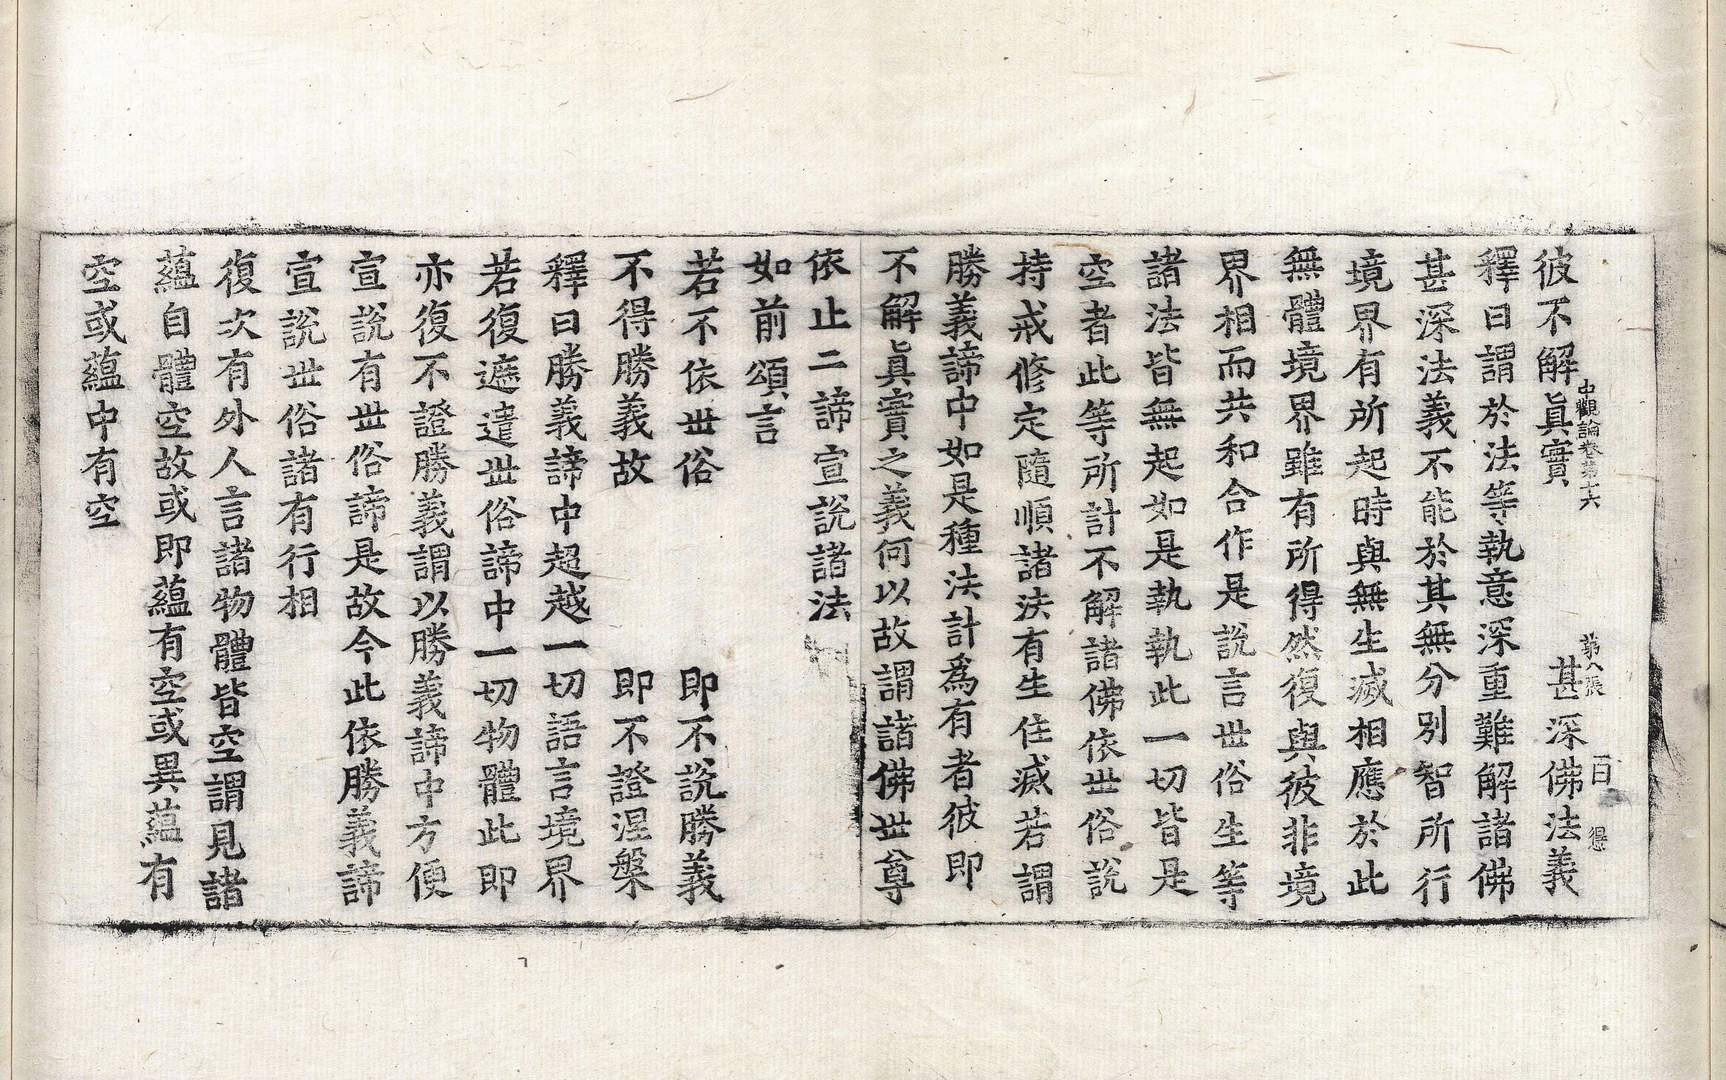 中觀論卷第十六 第八張 曰
彼不解眞實 甚深佛法義
釋曰謂於法等執意深重難解諸佛
甚深法義不能於其無分別智所行
境界有所起時與無生滅相應於此
無體境界雖有所得然復與彼非境
界相而共和合作是說言世俗生等
諸法皆無起如是執執此一切皆是
空者此等所計不解諸佛依世俗說
持戒修定隨順諸法有生住滅若謂
勝義諦中如是種法計爲有者彼即
不解眞實之義何以故謂諸佛世尊
依止二諦宣說諸法
如前頌言
若不依世俗 即不說勝義
不得勝義故 即不證涅槃
釋曰勝義諦中超越一切語言境界
若復遮遣世俗諦中一切物體此即
亦復不證勝義謂以勝義諦中方便
宣說有世俗諦是故今此依勝義諦
宣說世俗諸有行相
復次有外人言諸物體皆空謂見諸
蘊自體空故或即蘊有空或異蘊有
空或蘊中有空